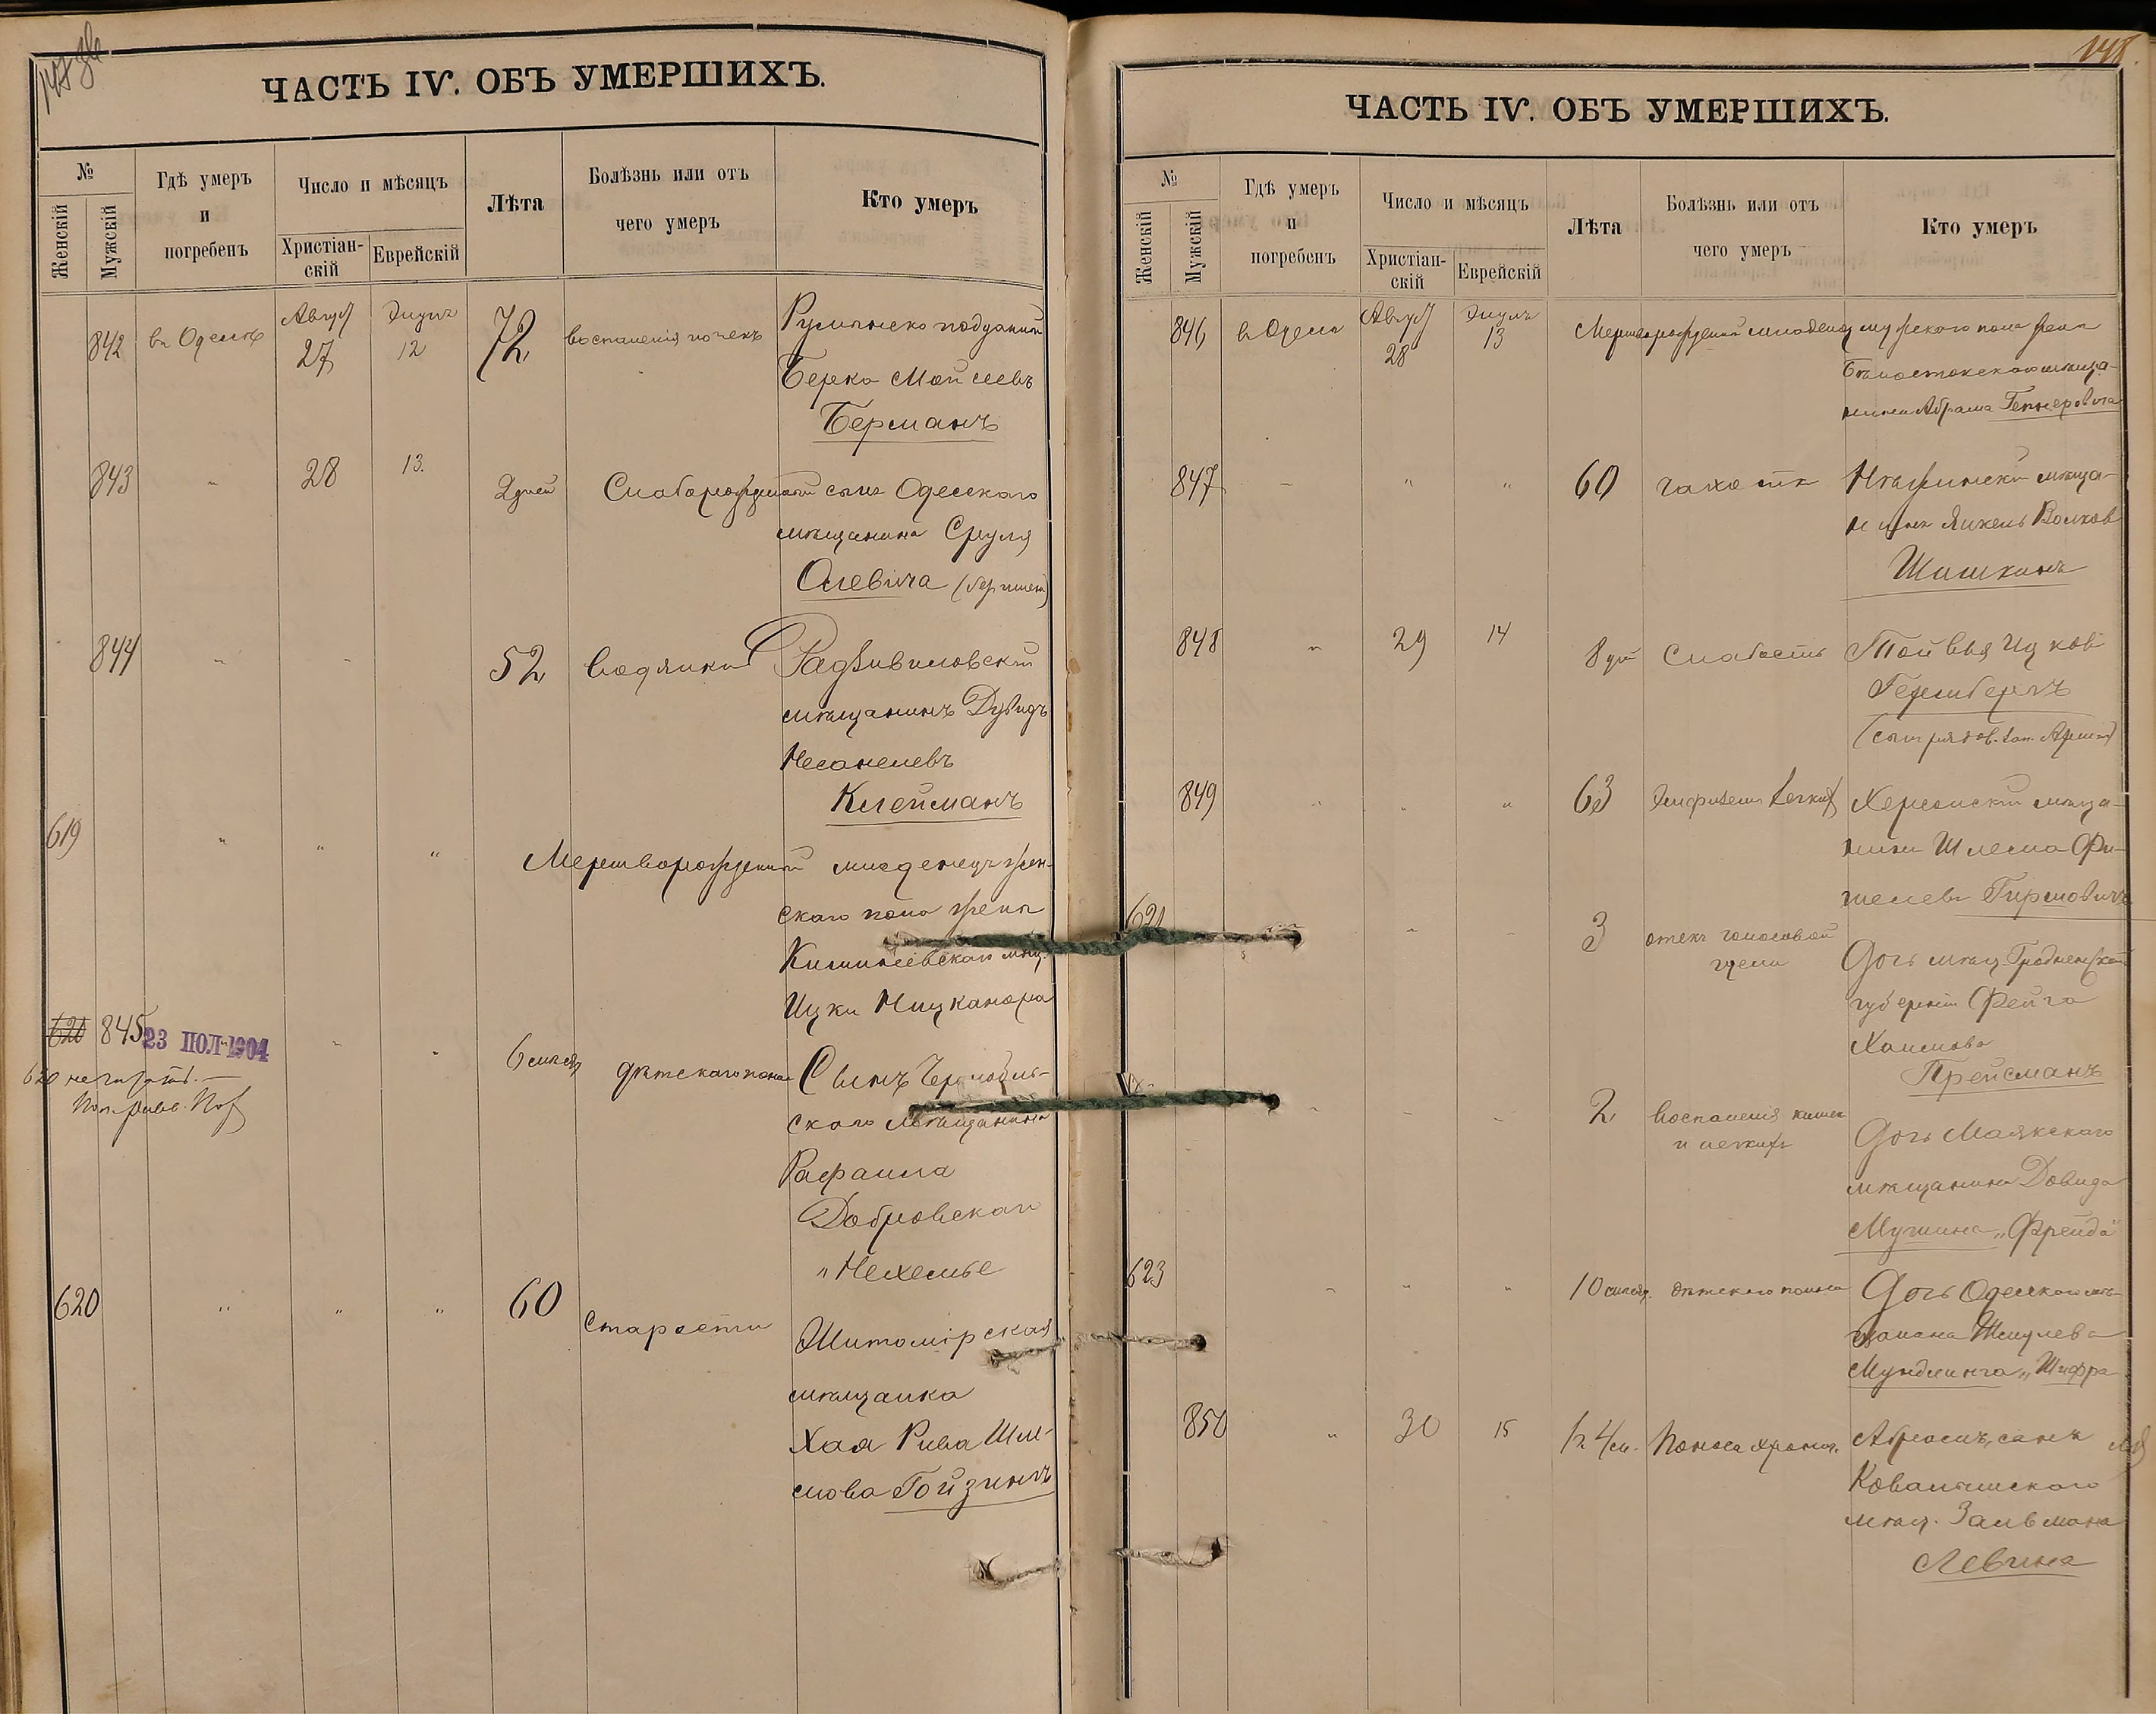 ЧАСТЬ IV. ОБЪ УМЕРШИХЪ.
№
Женскій
Мужскій
Гдѣ умеръ
и
погребенъ
Число и мѣсяцъ
Христіан-
скій
Еврейскій
Лѣта
Болѣзнь или отъ
чего умеръ
Кто умеръ
842 въ Одессѣ Август 27 Элулъ 12 72 воспаленія почекъ Румынско подданный
Берко Мойсеевъ
Берманъ
843 " 28 13 2 дней Слаборожденный сынъ Одесскаго
мѣщанина Сруля
Олевича
844 " " 52 водянки Радзивиловскій
мѣщанинъ Дувидъ
Несанелевъ
Клейманъ
619 " " " Мертворожденный младенецъ жен-
скаго пола жены
Кишиневскаго мѣщ.
Ицки Ницканера
620 845 23 ІЮЛ 1904 " " 6 мѣсяц дѣтскаго поноса Сынъ Чернобыль-
скаго мѣщанина
Рафаила
Добровскаго
"Нехемье
620 не читать.
620 " " " 60 Старости Житомірская
мѣщанка
Хая Рива Шле-
мова Гойзинъ
148
ЧАСТЬ IV. ОБЪ УМЕРШИХЪ.
№
Женскій
Мужскій
Гдѣ умеръ
и
погребенъ
Число и мѣсяцъ
Христіан-
скій
Еврейскій
Лѣта
Болѣзнь или отъ
чего умеръ
Кто умеръ
846 в Одессѣ Август 28 Элулъ 13 Мертворожденный младенец мужескаго пола жены
Бѣлостокскаго мѣща-
нина Абрама Геннеровича
847 " " " 60 чахотка Нѣжинскій мѣща-
нинъ Янкель Волков
Шишкинъ
848 " 29 14 8 дн Слабость Тойвья Ицков
Герценбергъ
849 " " " 63 Эмфизема легких Херсонскій мѣща-
нинъ Шлема Фи-
шелевъ Гирмовичъ
621 " " 3 отекъ голосовой
щели Дочь мѣщ. Гродненской
губерніи Фейга
Хаимова
Прейсманъ
" " " 2 Воспаленія кишек
и легкихъ Дочь Маякскаго
мѣщанина Довида
Мучника "Фрейда"
623 " " " 10 мѣсяц. дѣтскаго поноса Дочь Одесскаго мѣ-
щанина Шмулева
Мундлинга "Шифра
850 " 30 15 1 г. 4 м. Поноса хронич. Абрамъ, сынъ
Ковалишскаго
мѣщ. Зальмана
Левина